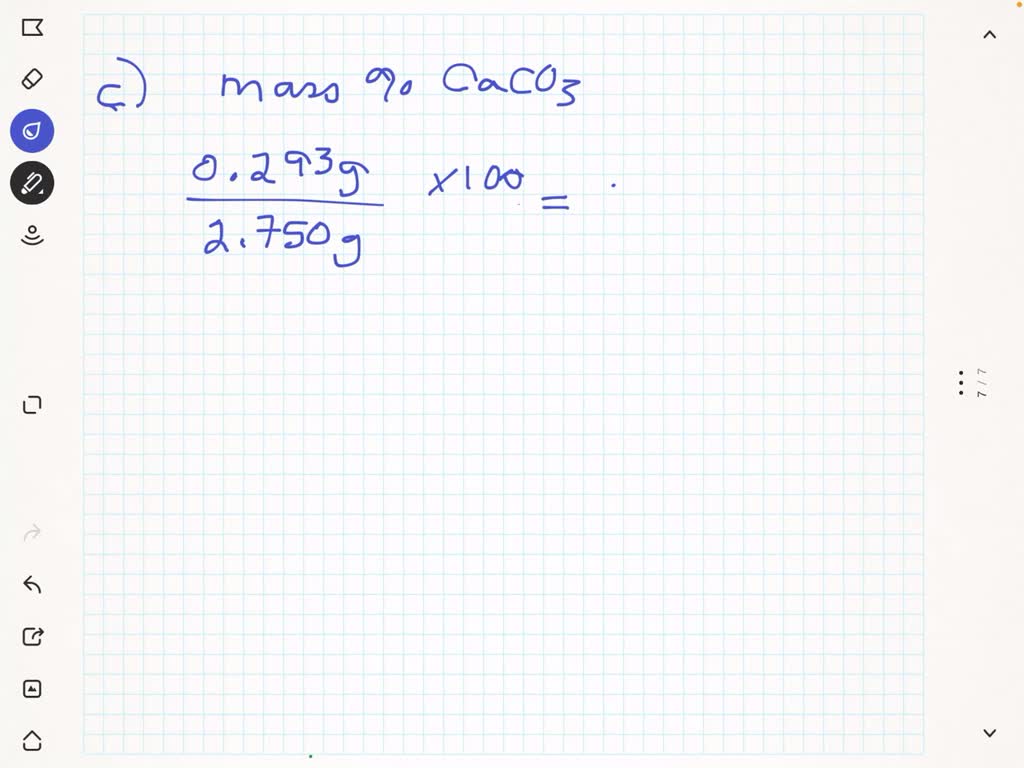 c) mass % CaCO3
0.293g
2.750g
×100 =
7/7